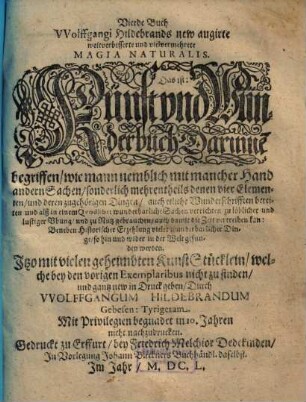 Vierde Buch
VVolffgangi Hildebrands new augirte
weitverbesserte und vielvermehrete
MAGIA NATURALIS.
Das ist:
Kunst vnd Wun
derbuch Darinne
begriffen/ wie mann nemblich mit mancher Hand
andern Sachen/ sonderlich mehrentheils denen vier Elemen-
ten/ und deren zugehörigen Dingen/ auch etliche Wunderschrifften berei-
ten und als in einem wunderbarliche Sachen verrichten zu löblicher und
lustiger Ubung und zu Nutz gebrauchen auch damit die Zeit vertreiben kan:
Beneben Historischer Erzehlung vieler wunderbarlicher Din-
ge so hin und wider in der Welt gefun-
den werden.
Itzo mit vielen geheimbten Kunst Stücklein/ wel-
che bey den vorigen Exemplaribus nicht zu finden/
und gantz new in Druck geben/ Durch
VVOLFFGANGUM HILDEBRANDUM
Gebesen: Tyrigetam.
Mit Privilegien begnadet in 10. Jahren
nicht nachzudrucken.
Gedruckt zu Erffurt/ bey Friedrich Melchior Dedekinden/
In Vorlegung Johann Birckners Buchhändl. daselbst.
Im Jahr/ M. DC. L.